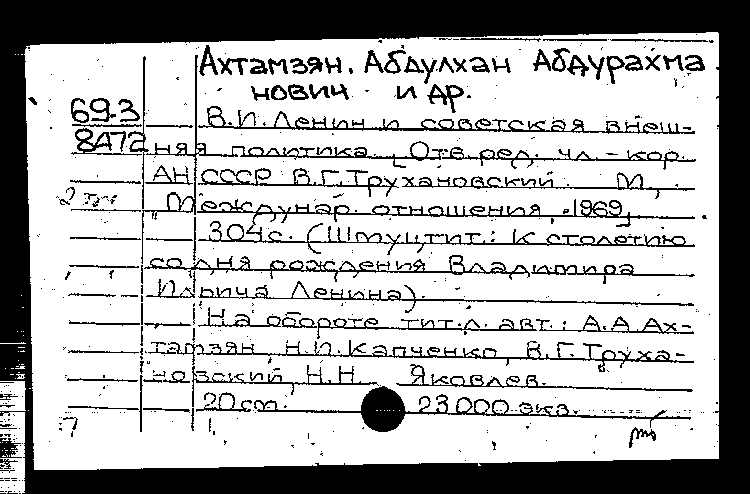 Ахтамзян, Абдулхан Абдурахма
нович и др.
69-3 В.И.Ленин и советская внеш-
8472 няя политика. [Отв.ред. чл.-кор.
АН СССР В.Г.Трухановский. М.,
"Междунар. отношения", 1969]
304с. (Шмуцтит.: К столетию
со дня рождения Владимира
Ильича Ленина).
На обороте тит.л. авт.: А.А.Ах-
тамзян, Н.И.Капченко, В.Г.Труха-
новский, Н.Н. Яковлев.
20 см. 23000 экз.